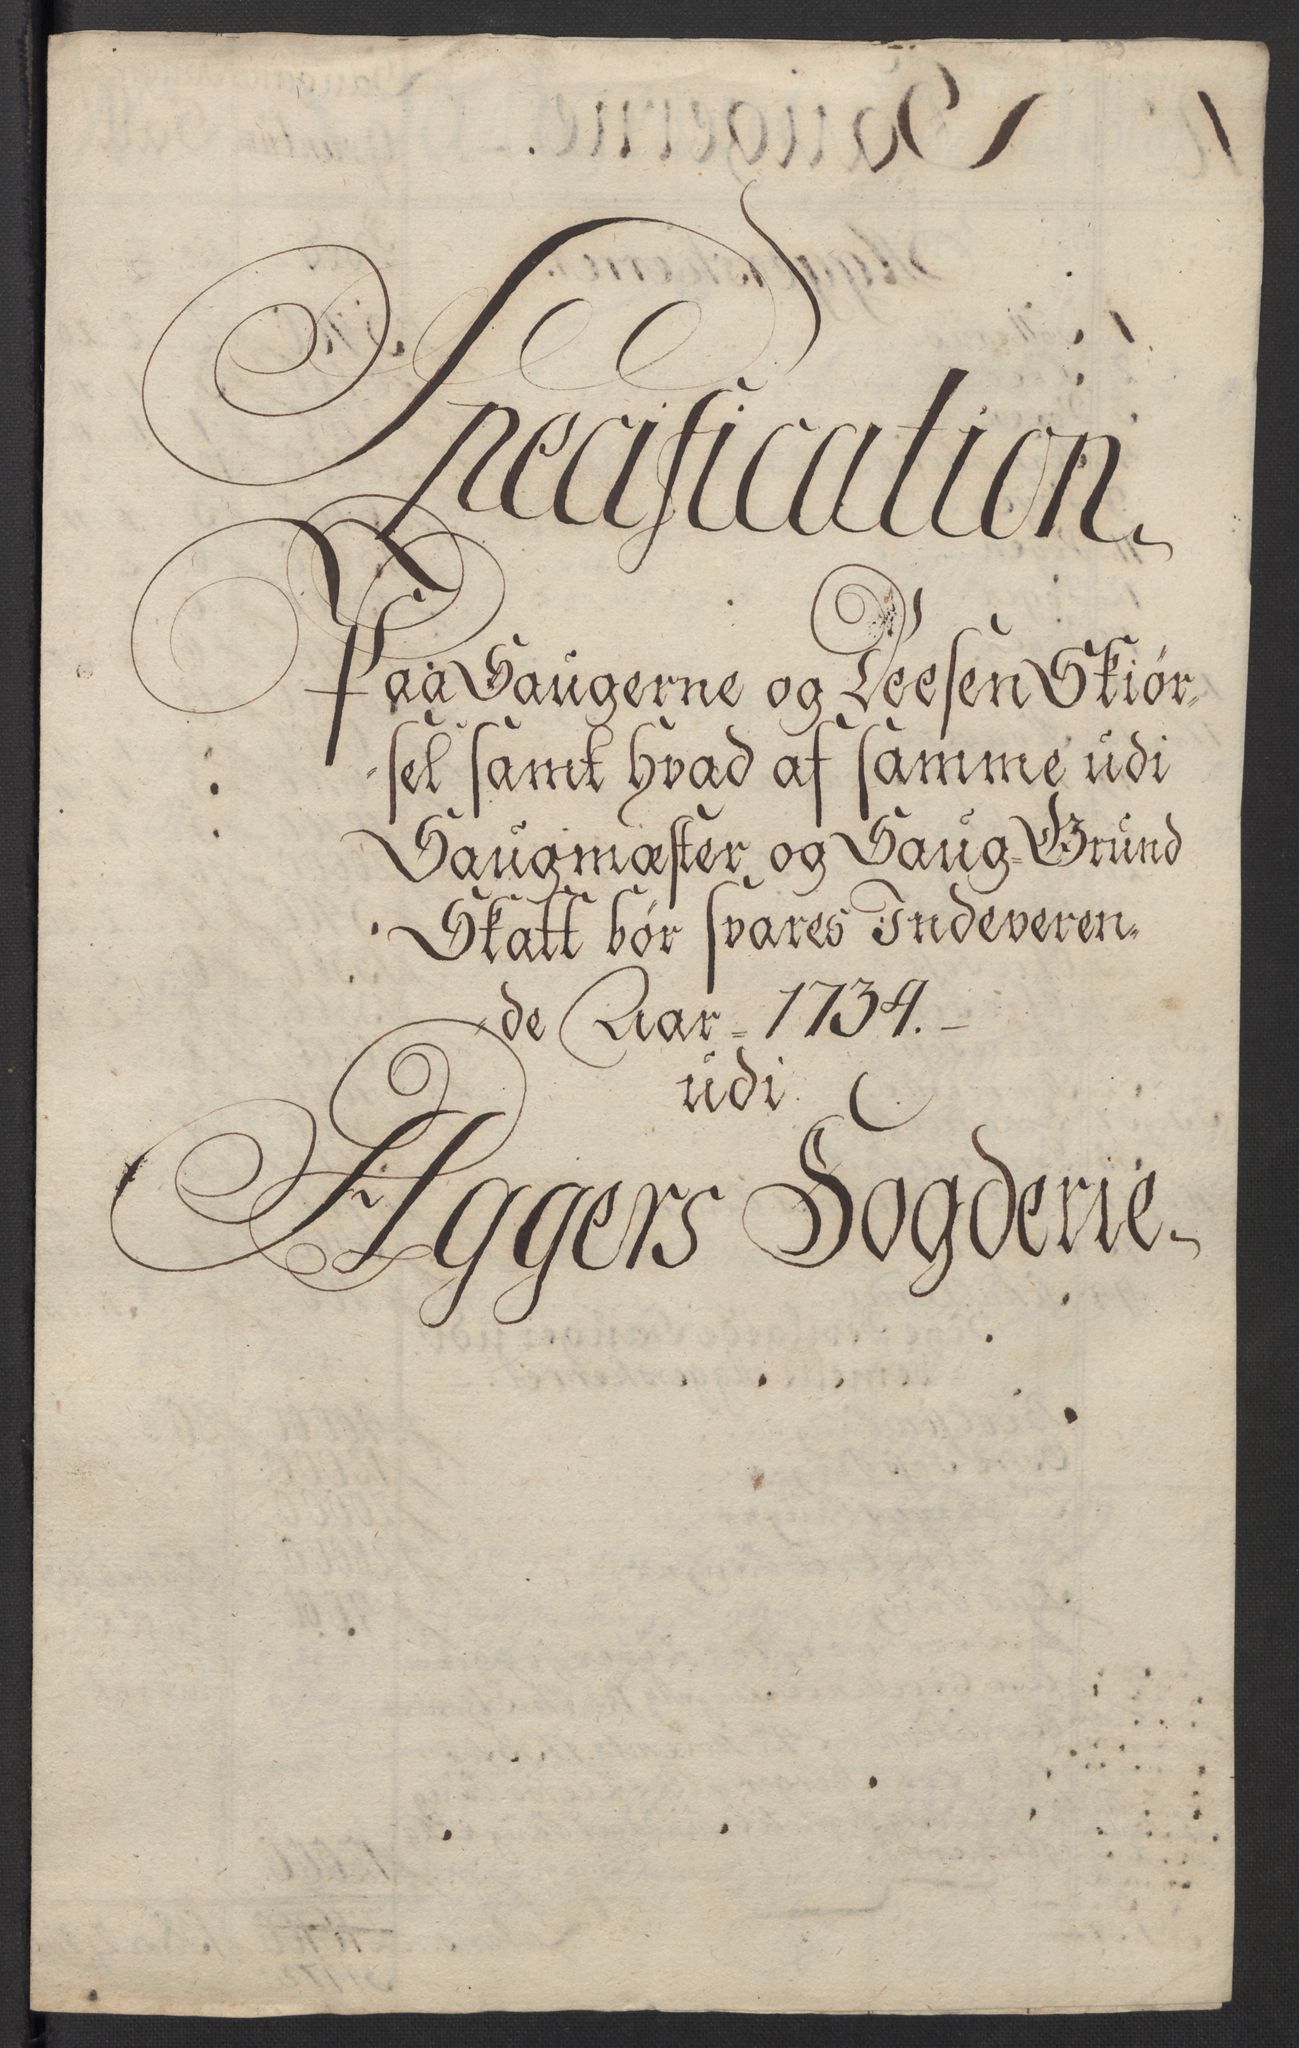 Specification
Paa Saugerne og Deesen Skiør-
sel samt hvad af samme udi
Saugmæster og Saug-Grund
Skatt bør svares Indeveren-
de Aar - 1734.
udi
Aggers Fogderie